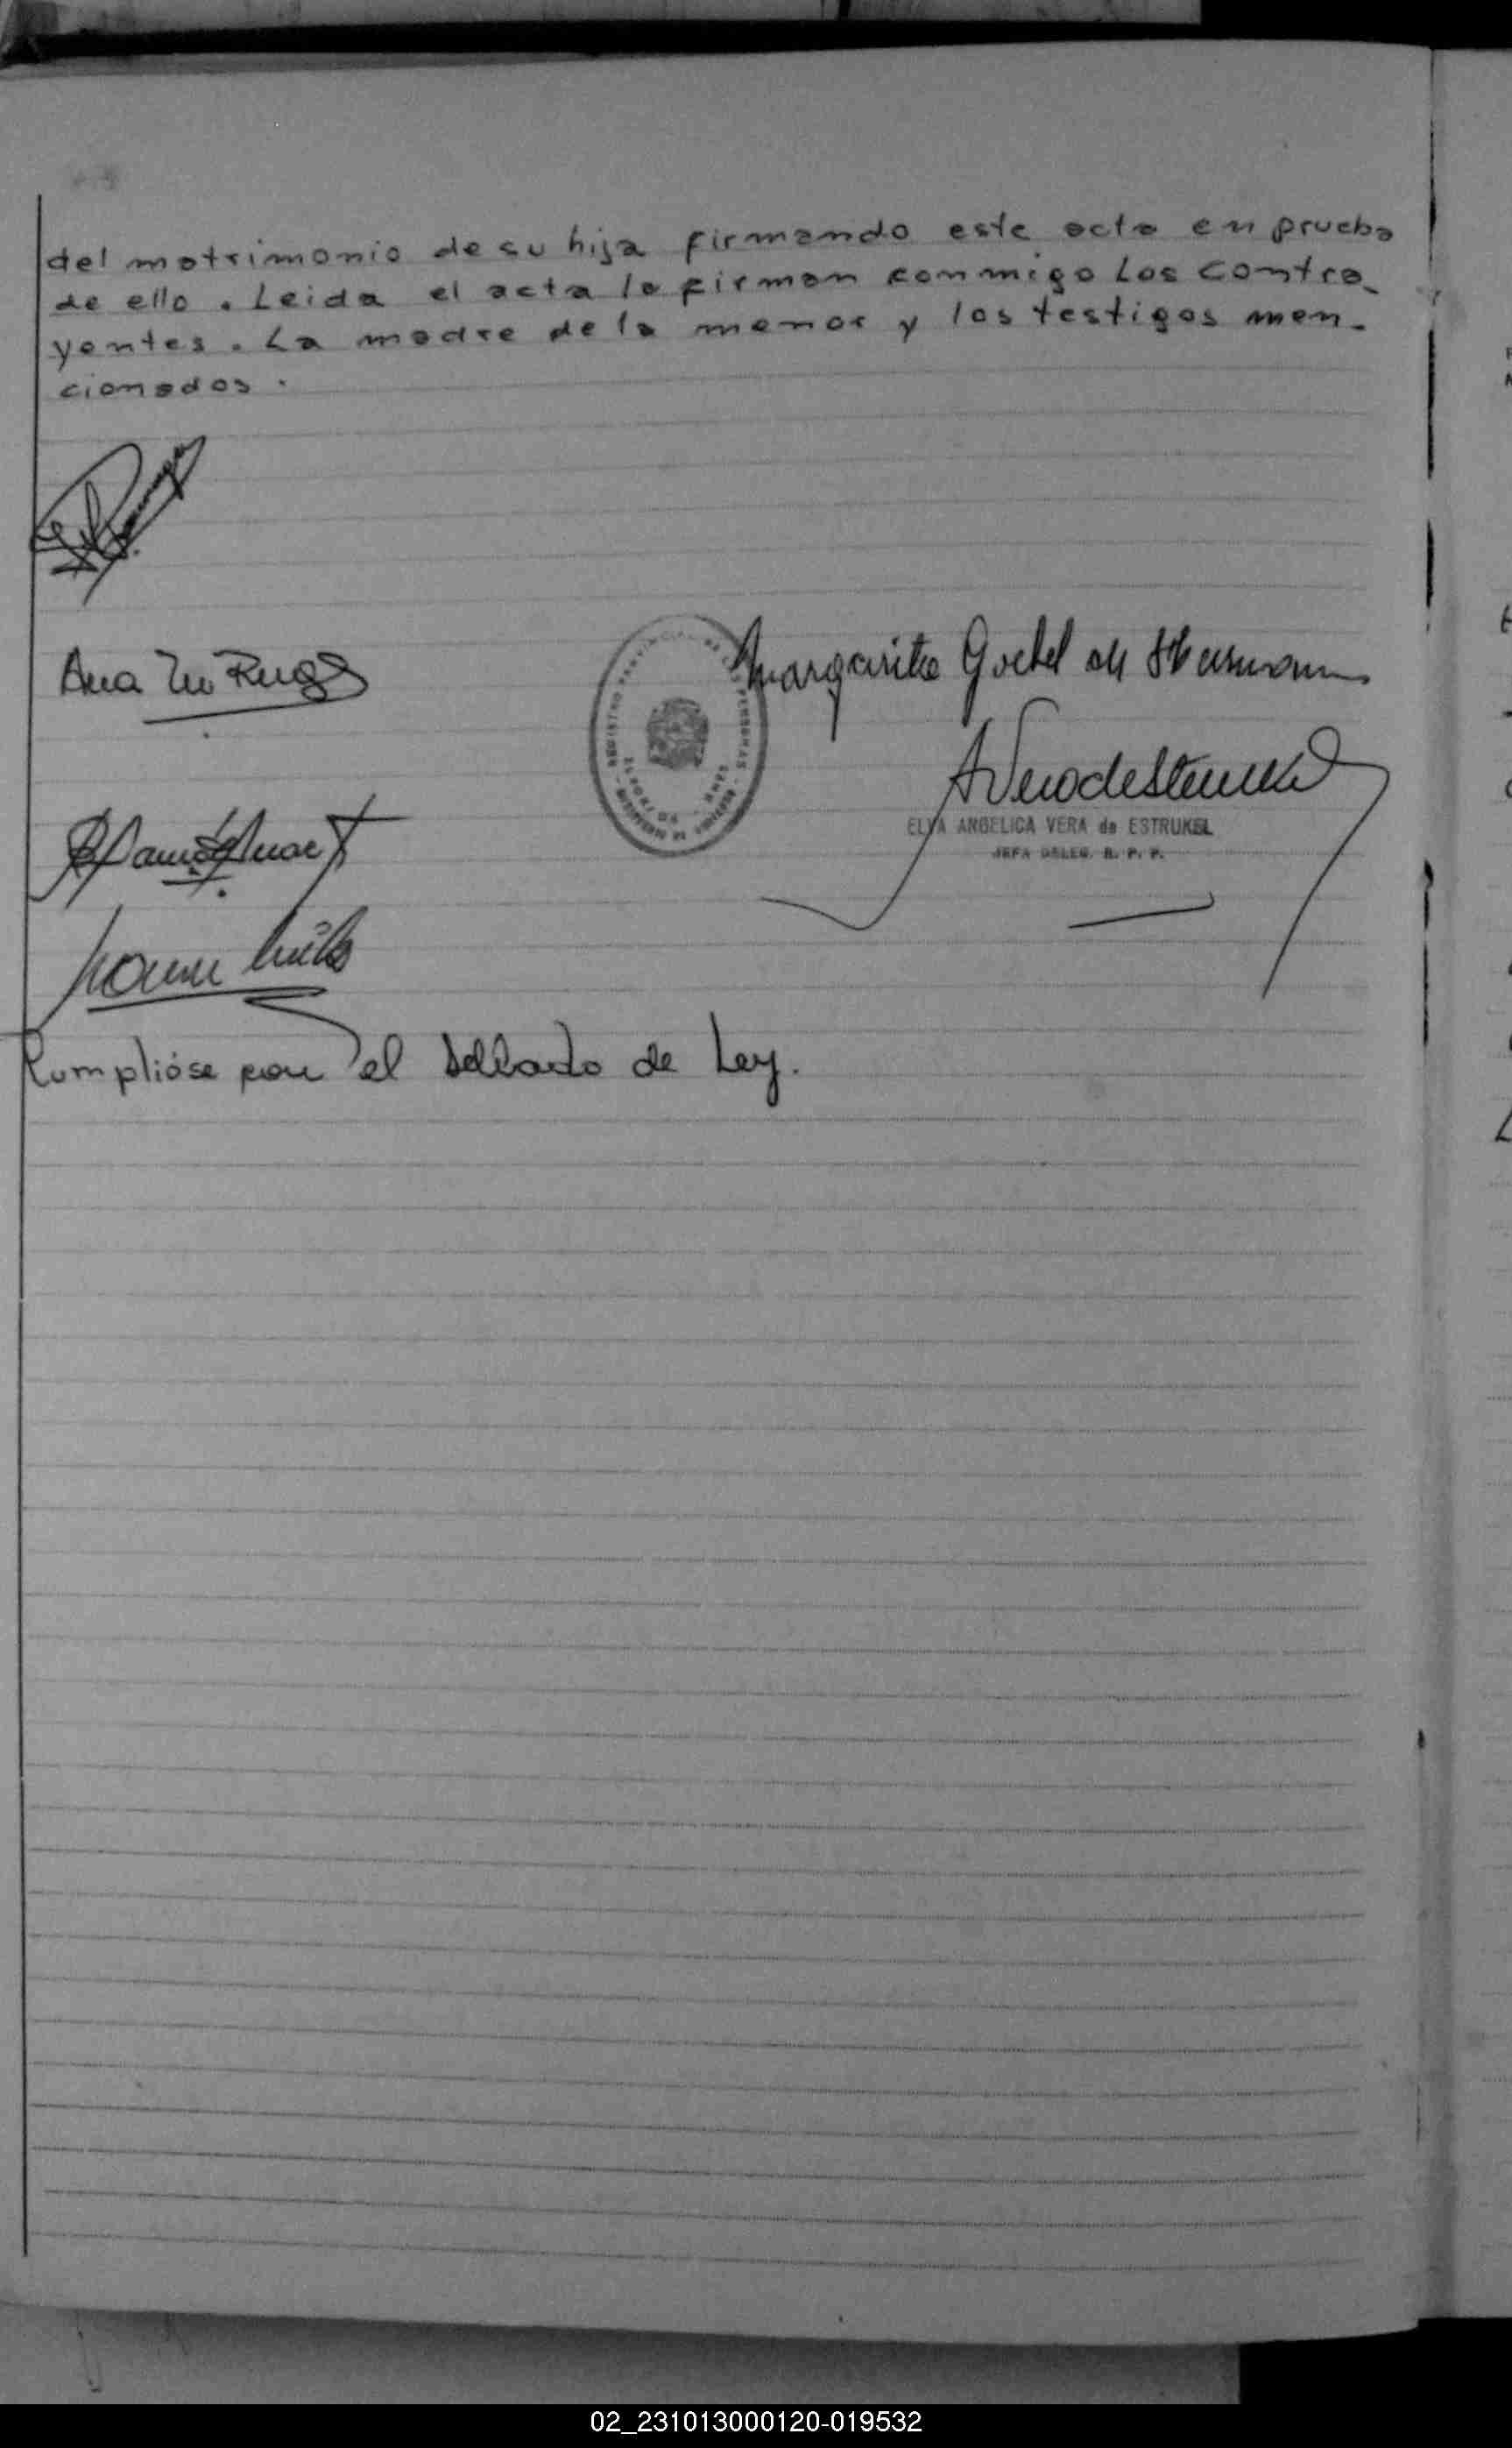 del matrimonio de su hija firmando este acta en prueba
de ello. Leida el acta la firman conmigo los contra_
yentes. La madre de la menor y los testigos men-
cionados.
Ana M
Margarita Goebel de
AVeradeEstrukel
ELVA ANGELICA VERA de ESTRUKEL
JEFA DELEG. R. P. P.
REGISTRO PROVINCIAL DE LAS PERSONAS
Cumplióse con el Sellado de Ley.
02_231013000120-019532